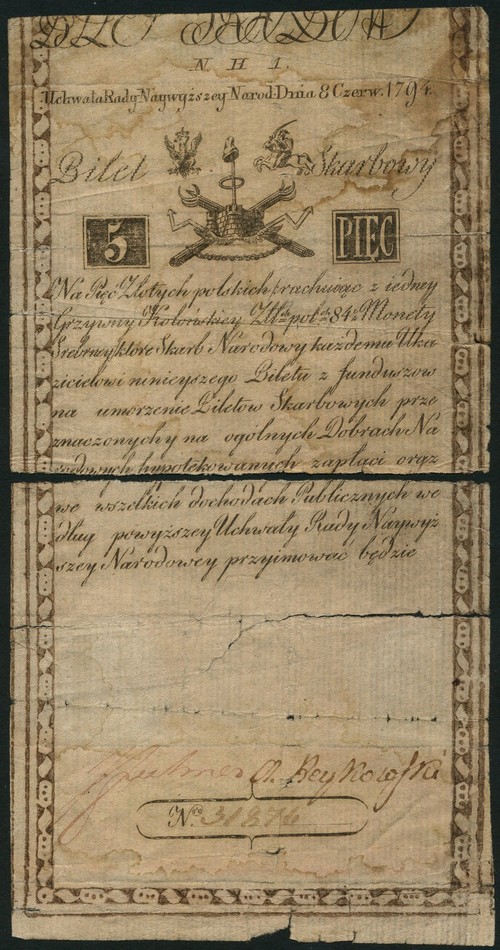 N H 1.
Uchwała Rady Naywyższey Narod: Dnia 8 Czerw. 1794.
Bilet Skarbowy
5 PIĘC
Na Pięć Złotych polskich rachuiąc z iedney
Grzywny Kolońskiey Zł. pol. 84½ Monety
Srebrney ktore Skarb Narodowy każdemu Oka
zicielowi ninieyszego Biletu z funduszow
na umorzenie Biletow Skarbowych prze
znaczonych y na ogólnych Dobrach Na
rodowych hypotekowanych zapłaci oraz
we wszelkich dochodach Publicznych we
dług powyższey Uchwały Rady Naywyż
szey Narodowey przyimować będzie
A. Reykowski
No